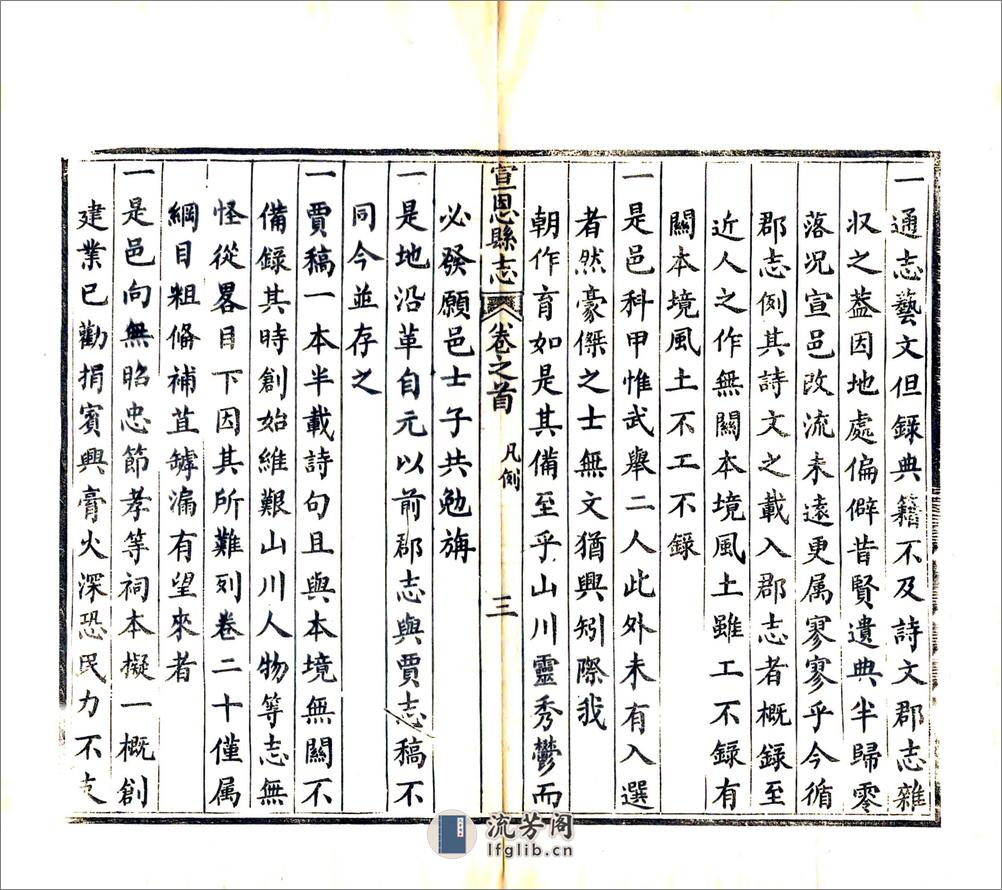 一通志藝文但錄典籍不及詩文郡志雜
収之葢因地處偏僻昔賢遺典半歸零
落况宣邑改流未遠更属寥寥乎今循
郡志例其詩文之載入郡志者概録至
近人之作無關本境風土雖工不録有
關本境風土不工不録
一是邑科甲惟武舉二人此外未有入選
者然豪傑之士無文猶興矧際我
朝作育如是其備至乎山川靈秀鬱而
宣恩縣志
卷之首
凡例
三
必發願邑士子共勉旃
一是地沿革自元以前郡志與賈志稿不
同今並存之
一賈稿一本半載詩句且與本境無關不
備錄其時創始維艱山川人物等志無
怪從畧目下因其所難列卷二十僅属
綱目粗俻補苴罅漏有望來者
一是邑向無昭忠節孝等祠本擬一概創
建業已勸捐賓興膏火深恐民力不支
流芳阁
lfglib.cn